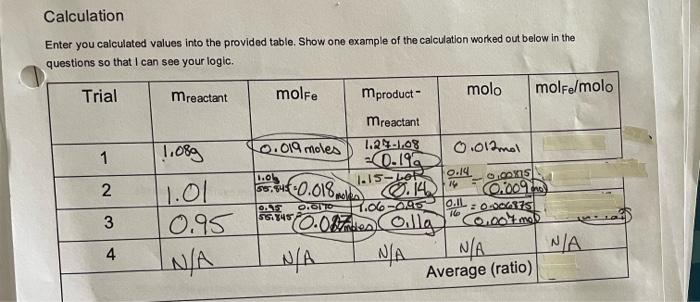 Calculation
Enter you calculated values into the provided table. Show one example of the calculation worked out below in the
questions so that I can see your logic.
Trial mreactant molFe mproduct- molo molFe/molo
mreactant
1 1.08g 0.019 moles 1.27-1.08 0.012mol
=0.19g
2 1.01 1.01/55.845 =0.018 moles 1.15-1.01 0.14 0.14/16 = 0.00875 0.009 mol
3 0.95 0.95/55.845 0.0170 moles 1.06-0.95 0.11g 0.11/16 = 0.006875 0.007 mol
4 N/A N/A N/A N/A N/A
Average (ratio)